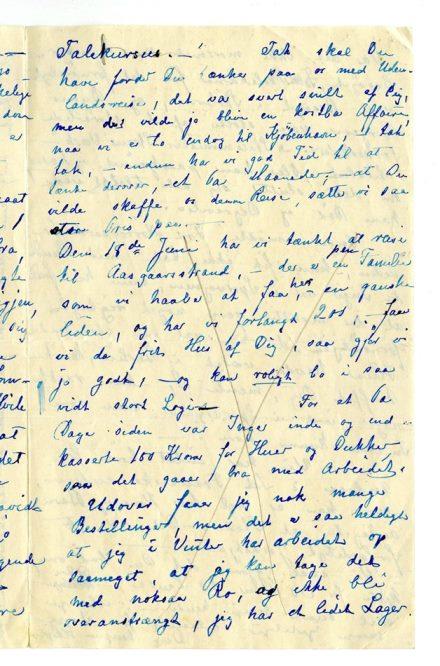 Talekursus. —! Tak skal Du
have fordi Du tænker paa os med Uden-
landsreise, det var svært snilt af Dig,
men det vilde jo bliv en kostbar Affaire,
naar vi er to endog til Kjøbenhavn, — tak
tak, — endnu har vi god Tid til at
tænke derover, — et Pa Maaneder; — at Du
vilde skaffe os denne Reise, sætte vi saa
stor Pris paa. —
Den 18de Juni har vi tænkt at reise
til Aasgaardsstrand, — der er en pen Familie
som vi haaber at faa, her — en ganske
liden, og har vi forlangt 200 — faar
vi da frit Hus af Dig, saa gjør vi
jo godt, — og kan roligt bo i saa
vidt stort Logis — For et Pa
Dage siden var Inger inde og ind-
kasserte 100 Kroner for Huer og Dukker,
saa det gaar bra med Arbeidet.
Udover faaer jeg nok mange
Bestillinger, men det er saa heldigt
at jeg i Vinter har arbeidet op
saameget, at jeg kan tage det
med noksaa Ro, og ikke bli
overanstrængt, jeg har et lidet Lager.